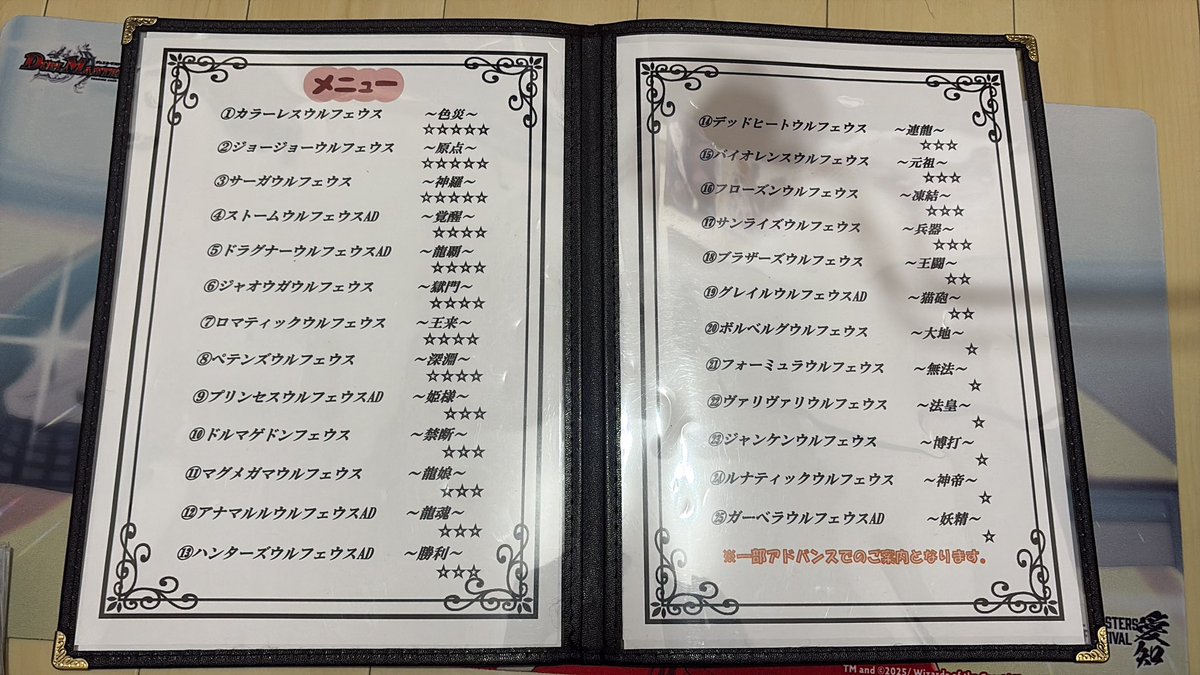 メニュー
①カラーレスウルフェウス ～色災～
☆☆☆☆☆
②ジョージョーウルフェウス ～原点～
☆☆☆☆☆
③サーガウルフェウス ～神羅～
☆☆☆☆☆
④ストームウルフェウスAD ～覚醒～
☆☆☆☆
⑤ドラグナーウルフェウスAD ～龍覇～
☆☆☆☆
⑥ジャオウガウルフェウス ～獄門～
☆☆☆☆
⑦ロマティックウルフェウス ～王来～
☆☆☆☆
⑧ペテンズウルフェウス ～深淵～
☆☆☆☆
⑨プリンセスウルフェウスAD ～姫様～
☆☆☆
⑩ドルマゲドンフェウス ～禁断～
☆☆☆
⑪マグメガマウルフェウス ～龍娘～
☆☆☆
⑫アナマルルウルフェウスAD ～龍魂～
☆☆☆
⑬ハンターズウルフェウスAD ～勝利～
☆☆☆
⑭デッドヒートウルフェウス ～連龍～
☆☆☆
⑮バイオレンスウルフェウス ～元祖～
☆☆☆
⑯フローズンウルフェウス ～凍結～
☆☆☆
⑰サンライズウルフェウス ～兵器～
☆☆☆
⑱ブラザーズウルフェウス ～王闘～
☆☆
⑲グレイルウルフェウスAD ～猫砲～
☆☆
⑳ボルベルグウルフェウス ～大地～
☆
㉑フォーミュラウルフェウス ～無法～
☆
㉒ヴァリヴァリウルフェウス ～法皇～
☆
㉓ジャンケンウルフェウス ～博打～
☆
㉔ルナティックウルフェウス ～神帝～
☆
㉕ガーベラウルフェウスAD ～妖精～
☆
※一部アドバンスでのご案内となります。
愛知
TM and ©2025/